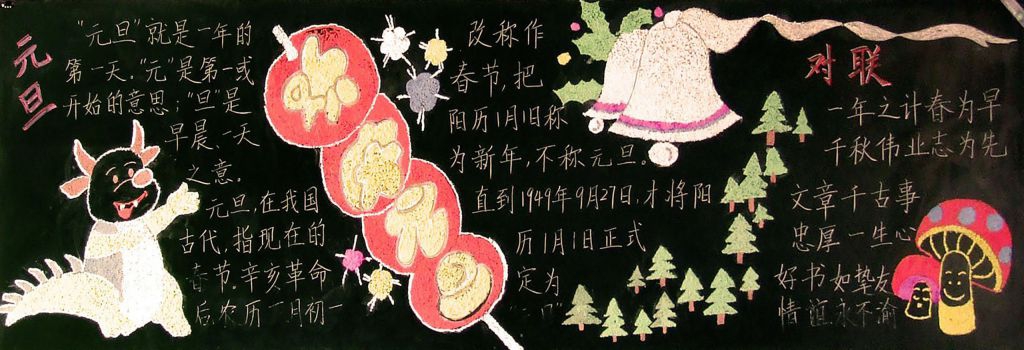 元旦
"元旦"就是一年的
第一天."元"是第一或
开始的意思;"旦"是
早晨、一天
之意。
元旦,在我国
古代,指现在的
春节.辛亥革命
后,农历一月初一
改称作
春节,把
阳历1月1日称
为新年,不称元旦。
直到1949年9月27日,才将阳
历1月1日正式
定为
对联
一年之计春为早
千秋伟业志为先
文章千古事
忠厚一生心
好书如挚友
情谊永不渝